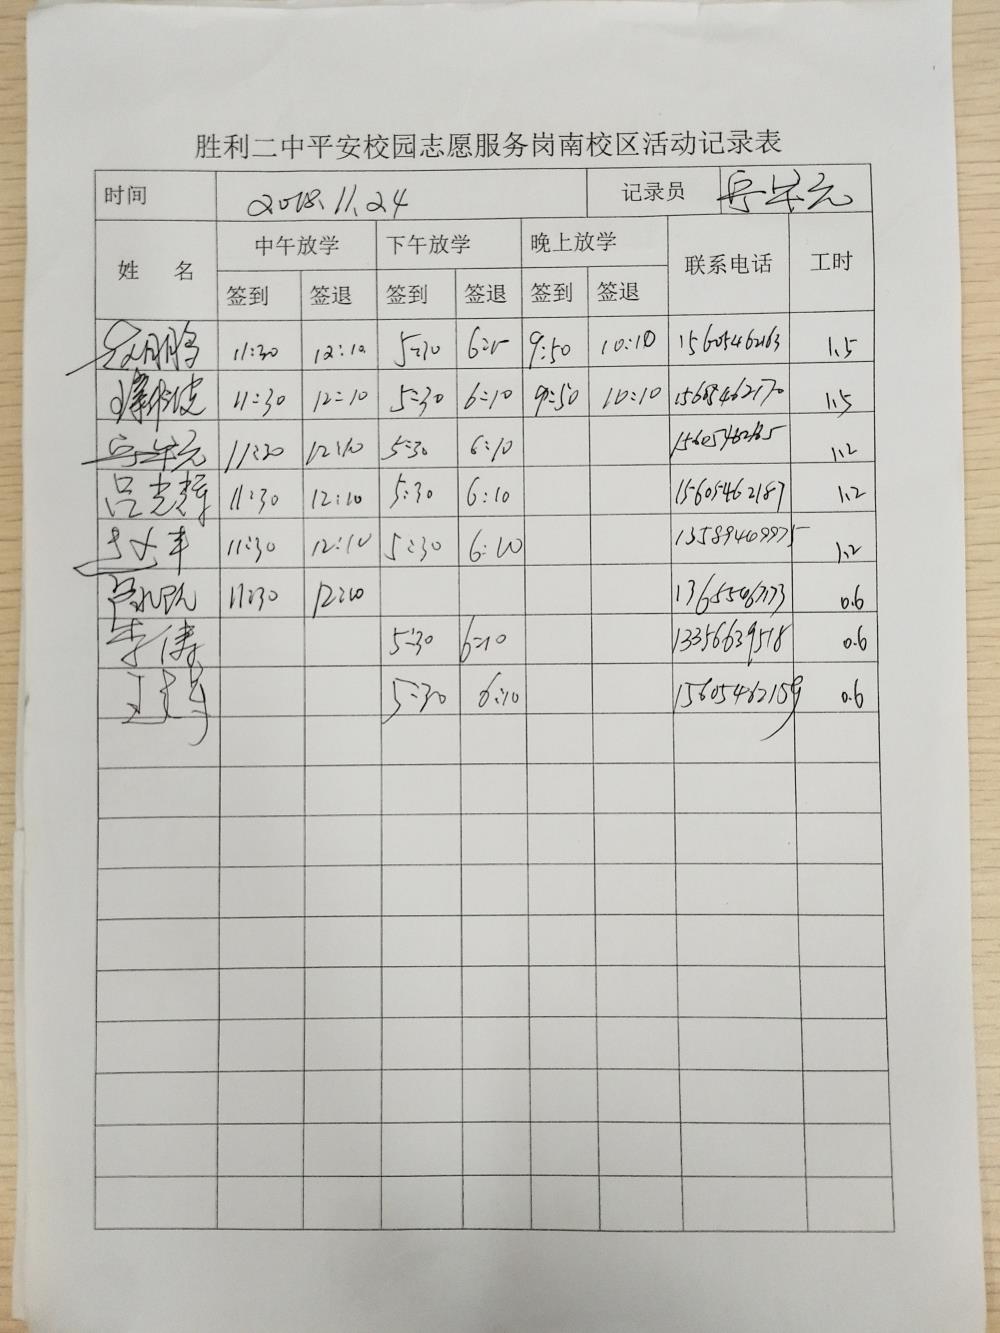 胜利二中平安校园志愿服务岗南校区活动记录表
时间 2018.11.24 记录员
姓 名 中午放学 下午放学 晚上放学 联系电话 工时
签到 签退 签到 签退 签到 签退
11:30 12:10 5:30 9:50 10:10 15605462163 1.5
11:30 12:10 5:30 6:10 9:50 10:10 15605462170 1.5
11:30 12:10 5:30 6:10 1.2
吕光辉 11:30 12:10 5:30 6:10 15605462187 1.2
11:30 12:10 5:30 6:10 13589469975 1.2
11:30 12:10 0.6
李涛 5:30 6:10 13356639518 0.6
5:30 6:10 15605462159 0.6